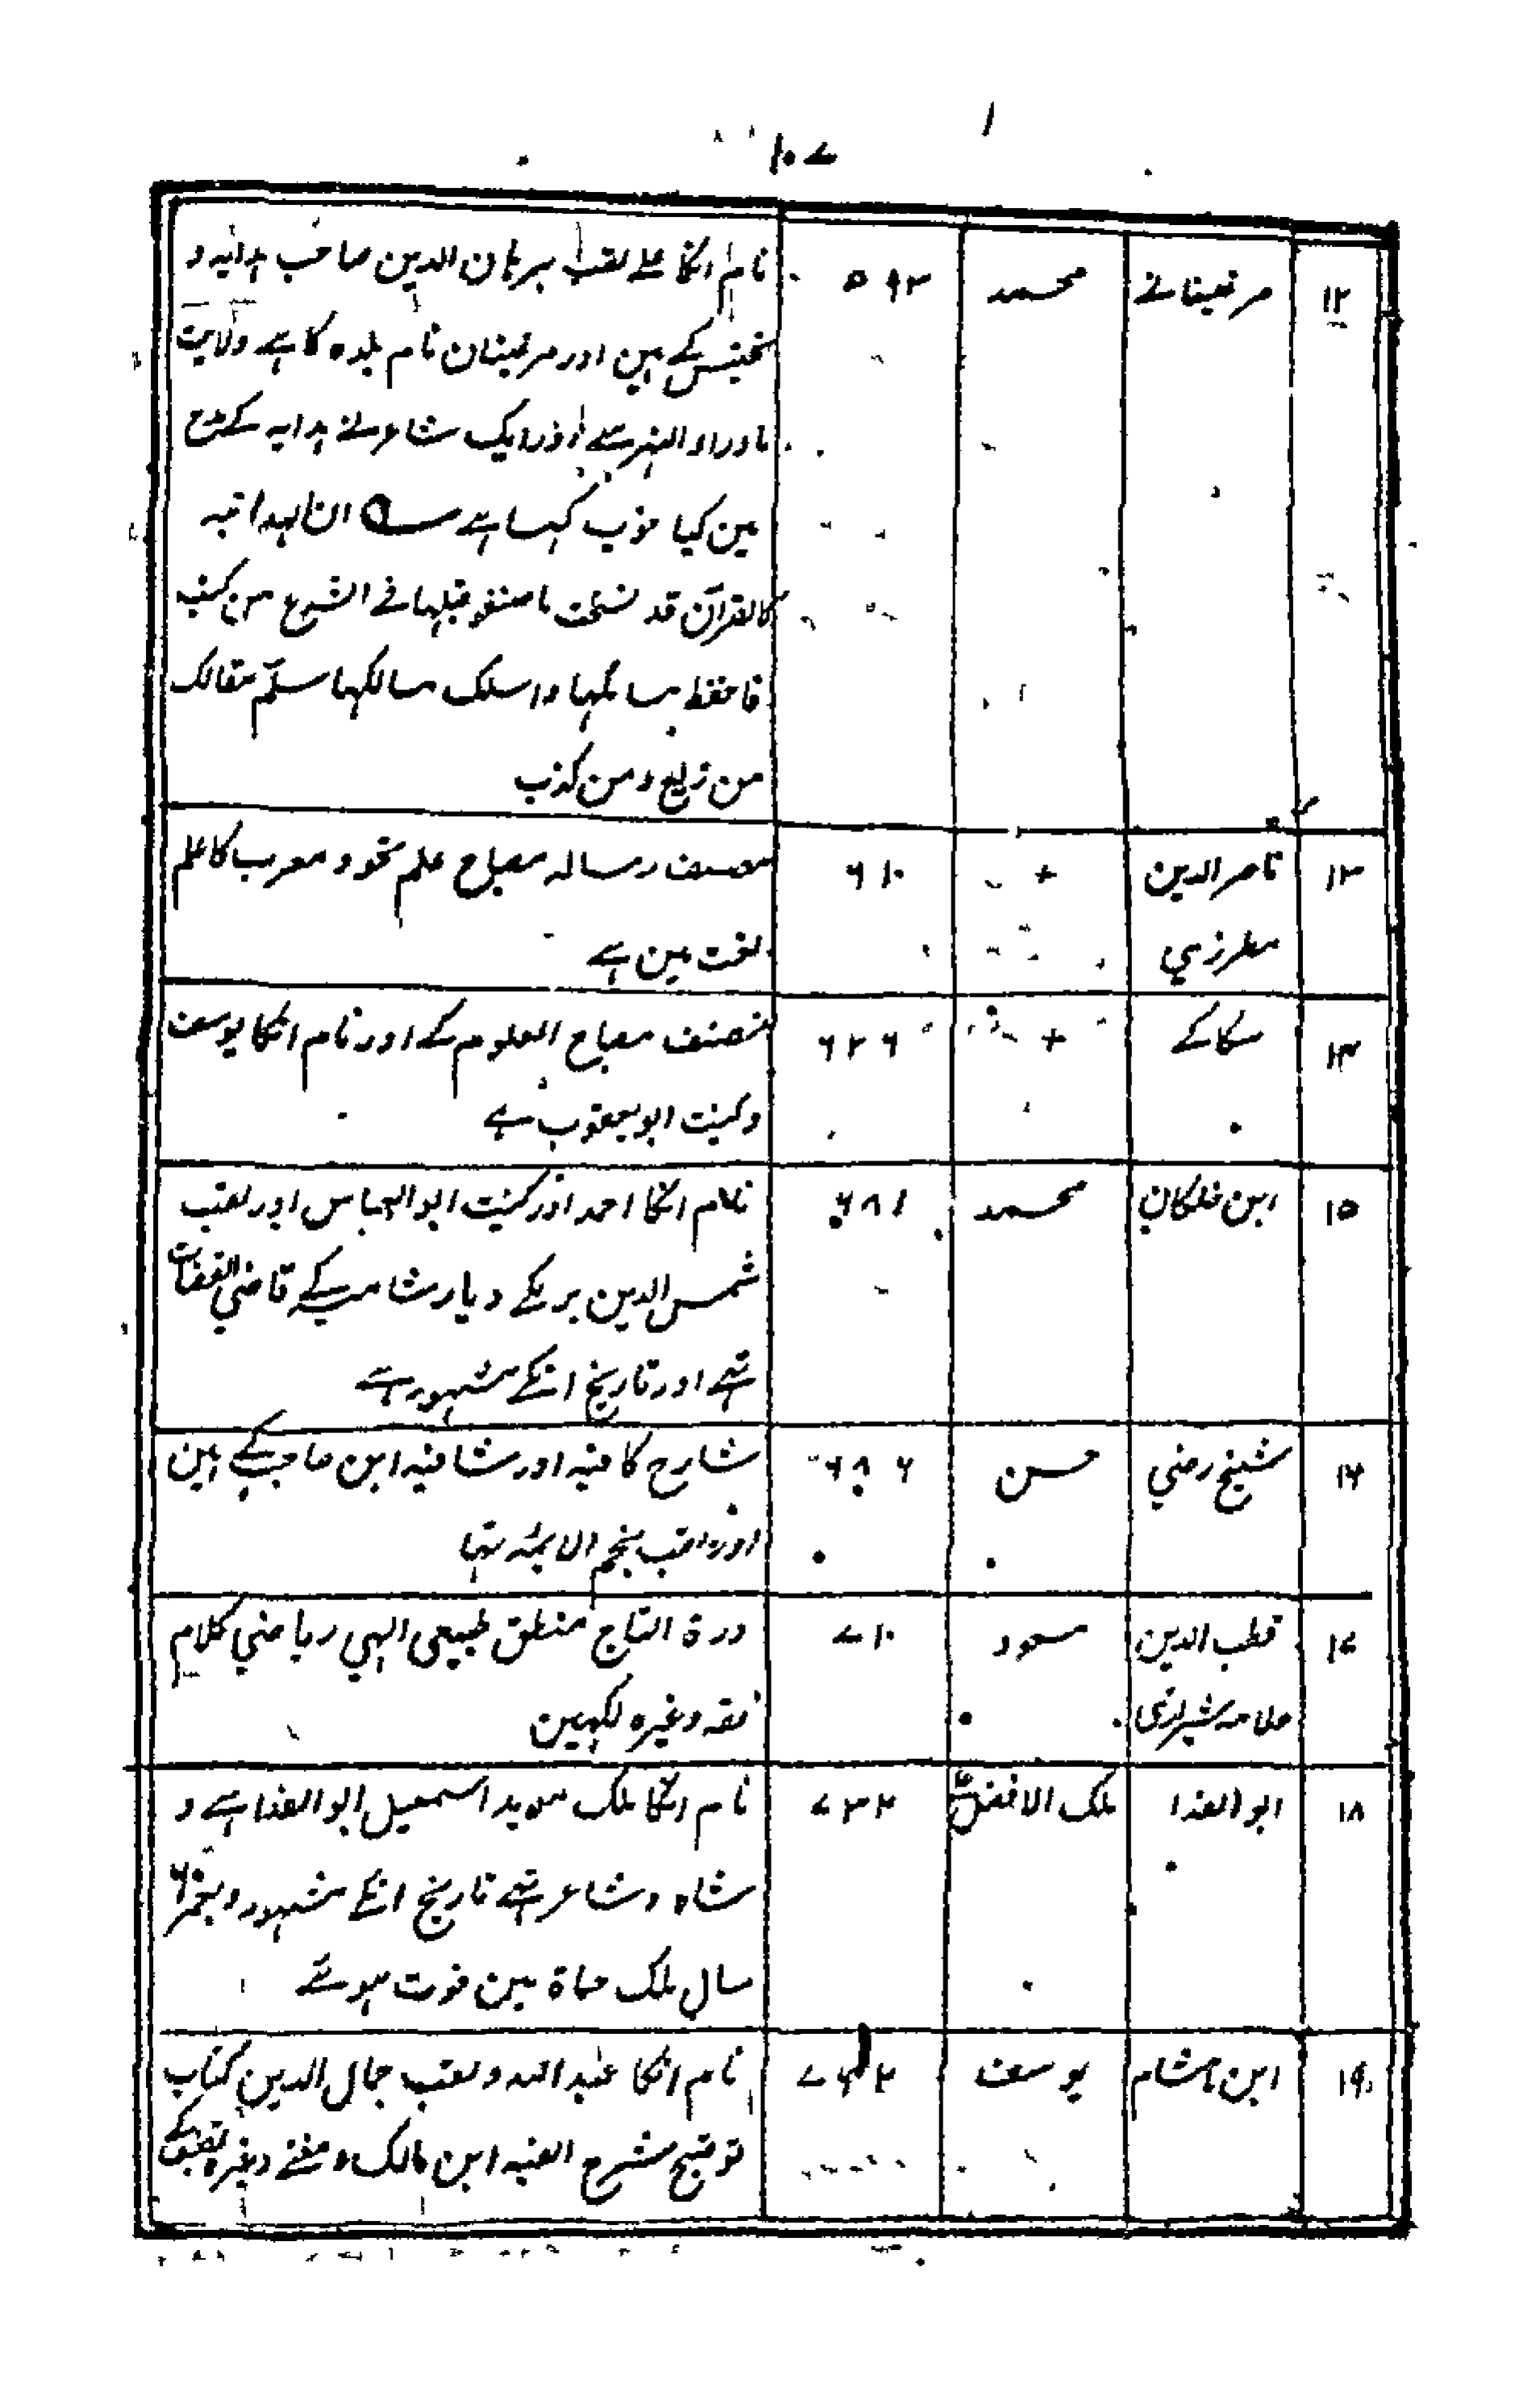 ۱۰۷
۱۲ مرغینانے محمد ۵۹۳ نام انکا علے لقب برہان الدین صاحب ہدایہ و
تجنیس کے ہین اور مرغینان نام بلدہ کا ہے ولایت
ماوراء النہر سے اور ایک شاعر نے ہدایہ کے مدح
مین کیا خوب کہا ہے ؎ ان الہدایۃ
کالقرآن قد نسخت ما صنفو قبلہا فے الشرع من کتب
فاحفظ مسائلہا واسلک مسالکہا سلم مقالک
من زیغ ومن کذب
۱۳ ناصر الدین + ۶۱۰ مصنف رسالہ مصباح علم نحو و معرب کا علم
مطرزي لغت مین ہے
۱۴ سکاکے + ۶۲۶ مصنف مصباح العلوم کے اور نام انکا یوسف
وکنیت ابو یعقوب ہے
۱۵ ابن خلکان محمد ۶۸۱ نام انکا احمد اور کنیت ابو العباس اور لقب
شمس الدین برمکے دیار شامیہ کے قاضي القضات
تہے اور تاریخ انکے مشہور ہے
۱۶ شیخ رضي حسن ۶۸۶ شارح کافیہ اور شافیہ ابن حاجب کے ہین
اور لقب نجم الایمہ تہا
۱۷ قطب الدین مسعود ۷۱۰ درۃ التاج منطق طبیعی الہي ریاضي کلام
علامہ شیرازی فقہ وغیرہ لکہین
۱۸ ابو الفدا ملک الافضل ۷۳۲ نام انکا ملک موید اسمعیل ابو الفدا ہے و
شاہ و شاعر تہے تاریخ انکے مشہور و بعمر ۶۰
سال ملک حماۃ مین فوت ہوئے
۱۹ ابن ہشام یوسف ۷۶۲ نام انکا عبد اللہ و لقب جمال الدین کتاب
توضیح شرح الفیہ ابن مالک و مغنے وغیرہ تصنیف کے